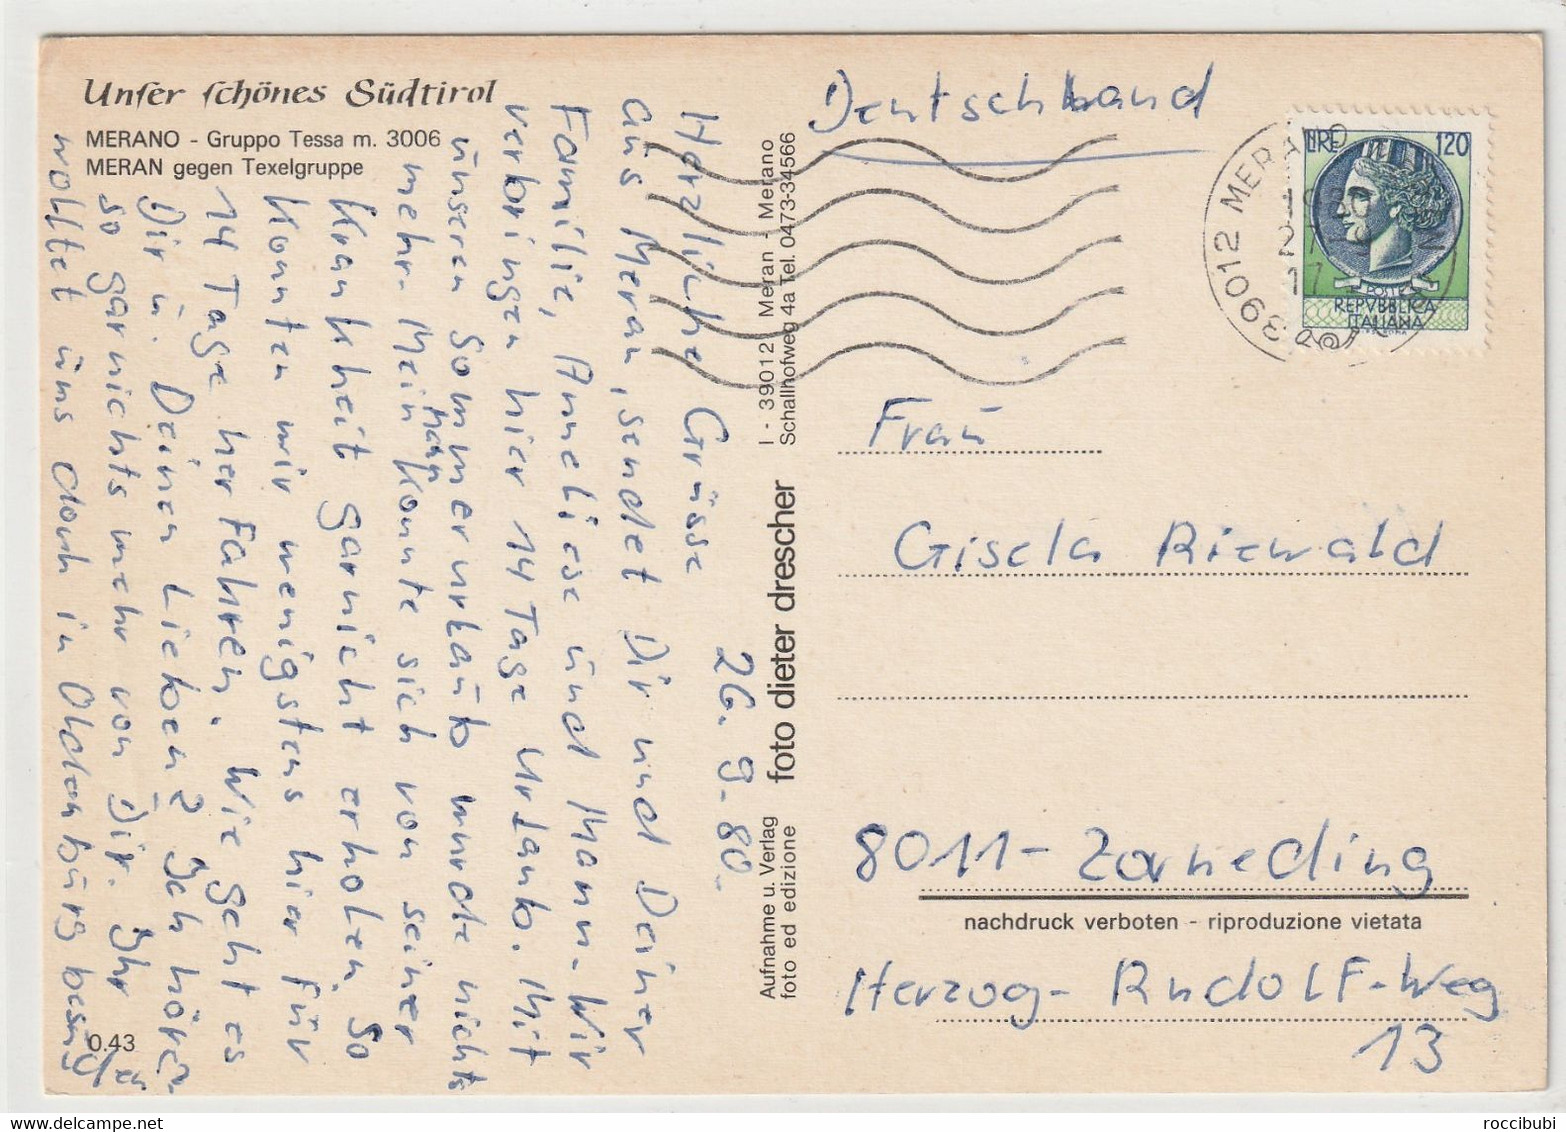 Unser schönes Südtirol
MERANO - Gruppo Tessa m. 3006
MERAN gegen Texelgruppe
26. 9. 80.
Herzliche Grüsse
aus Meran, sendet Dir und Deiner
Familie, Anneliese und Mann. Wir
verbringen hier 14 Tage Urlaub. Mit
unseren Sommerurlaub wurde nichts
mehr. Mein Mann konnte sich von seiner
Krankheit garnicht erholen. So
konnten wir wenigstens hier für
14 Tage herfahren. Wie geht es
Dir u. Deinen Lieben? Ich höre
so garnichts mehr von Dir. Ihr
wolltet uns doch in Oldenburg besuchen
0.43
Aufnahme u. Verlag
foto ed edizione
foto dieter drescher
I - 39012 Meran - Merano
Schallhofweg 4a Tel. 0473-34566
Deutschland
39012 MERANO
LIRE 120
POSTE
REPVBBLICA
ITALIANA
Frau
Gisela Riewald
8011 - Zorneding
nachdruck verboten - riproduzione vietata
Herzog-Rudolf-Weg
13
roccibubi